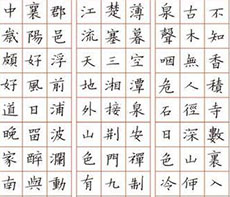 不知香積寺數裏入
古木無人徑深山何
泉聲咽危石日色冷
薄暮空潭曲安禪制
楚塞三湘接荊門九
江流天地外山色有
郡邑浮前浦波瀾動
襄陽好風日留醉與
中歲頗好道晚家南